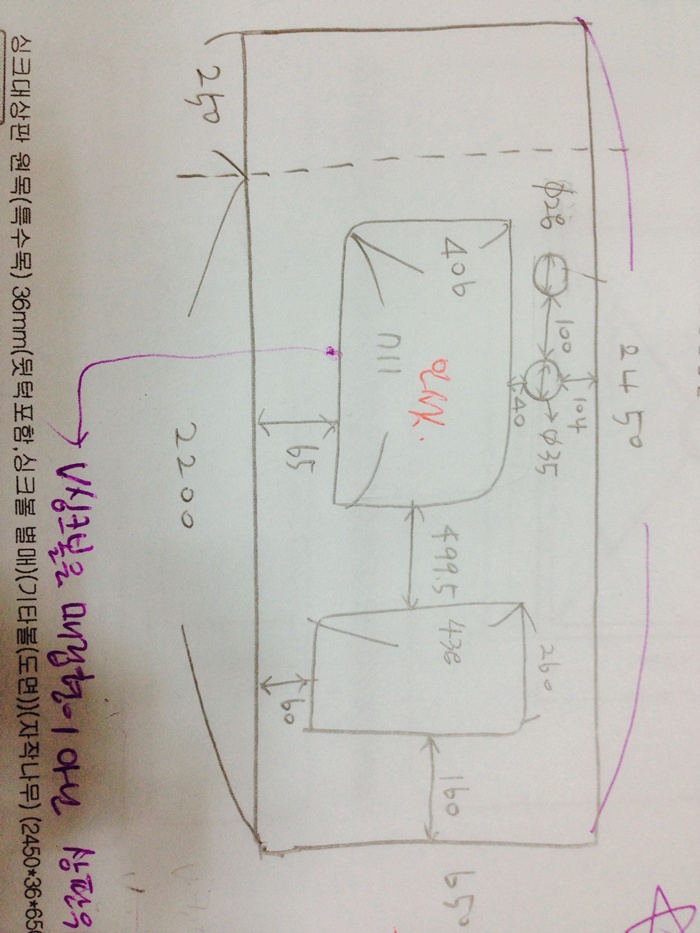 2450
104
Φ28
100
Φ35
40
260
406
499.5
430
160
650
65
60
250
2200
V싱크볼을 매립형이 아닌 상판위
싱크대상판 원목(특수목) 36mm(뒷턱포함,싱크볼 별매)(기타볼(도면))(자작나무) (2450*36*650